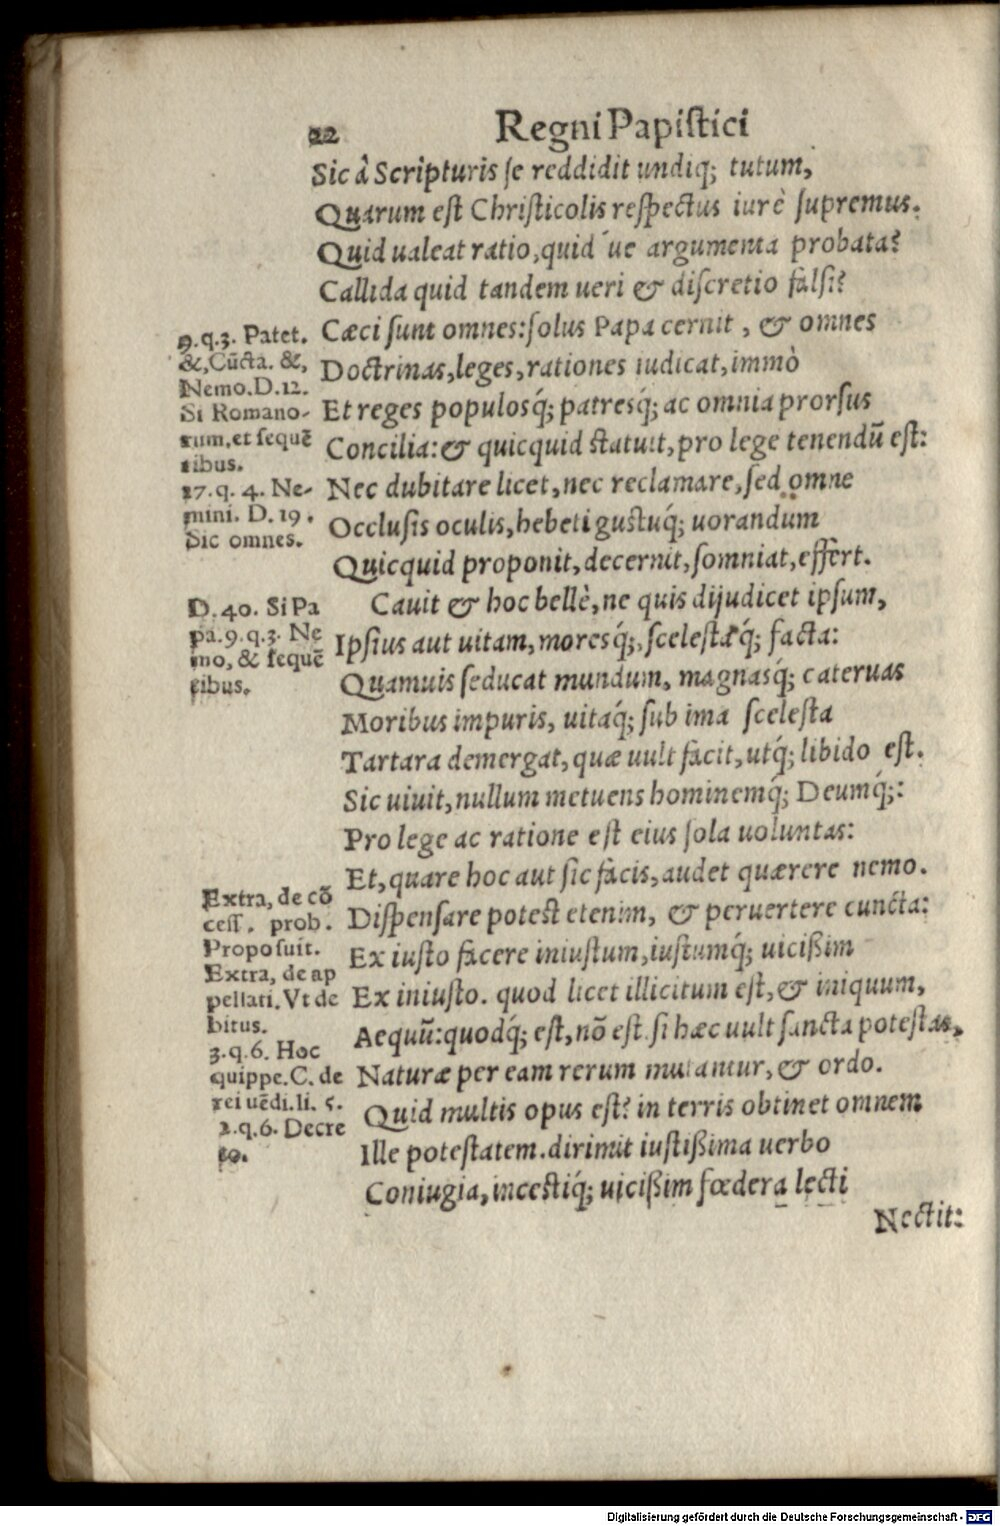 22 Regni Papistici
Sic à Scripturis se reddidit undiq; tutum,
Quarum est Christicolis respectus iurè supremus.
Quid ualeat ratio, quid´ue argumenta probata?
Callida quid tandem ueri & discretio falsi?
Cæci sunt omnes: solus Papa cernit, & omnes
Doctrinas, leges, rationes iudicat, immò
Et reges populosq́; patresq́; ac omnia prorsus
Concilia: & quicquid statuit, pro lege tenendũ est:
Nec dubitare licet, nec reclamare, sed omne
Occlusis oculis, hebeti gustuq́; uorandum
Quicquid proponit, decernit, somniat, effert.
Cauit & hoc bellè, ne quis dijudicet ipsum,
Ipsius aut uitam, moresq́;, scelestaq́; facta:
Quamuis seducat mundum, magnasq́; cateruas
Moribus impuris, uitaq́; sub ima scelesta
Tartara demergat, quæ uult facit, utq́; libido est.
Sic uiuit, nullum metuens hominemq́; Deumq́;:
Pro lege ac ratione est eius sola uoluntas:
Et, quare hoc aut sic facis, audet quærere nemo.
Dispensare potest etenim, & peruertere cuncta:
Ex iusto facere iniustum, iustumq́; uicißim
Ex iniusto. quod licet illicitum est, & iniquum,
Aequũ: quodq́; est, nõ est. si hæc uult sancta potestas,
Naturæ per eam rerum mutantur, & ordo.
Quid multis opus est? in terris obtinet omnem
Ille potestatem. dirimit iustißima uerbo
Coniugia, incestiq́; uicißim fœdera lecti
Nectit:
9.q.3. Patet.
&, Cũcta. &,
Nemo. D.12.
Si Romano-
rum. et sequẽ
tibus.
17.q. 4. Ne-
mini. D. 19.
Sic omnes.
D. 40. Si Pa
pa. 9.q.3. Ne
mo, & sequẽ
tibus.
Extra, de cõ
cess. prob.
Proposuit.
Extra, de ap
pellati. Vt de
bitus.
3.q.6. Hoc
quippe. C. de
rei uẽdi. li. 5.
2.q.6. Decre
to.
Digitalisierung gefördert durch die Deutsche Forschungsgemeinschaft - DFG